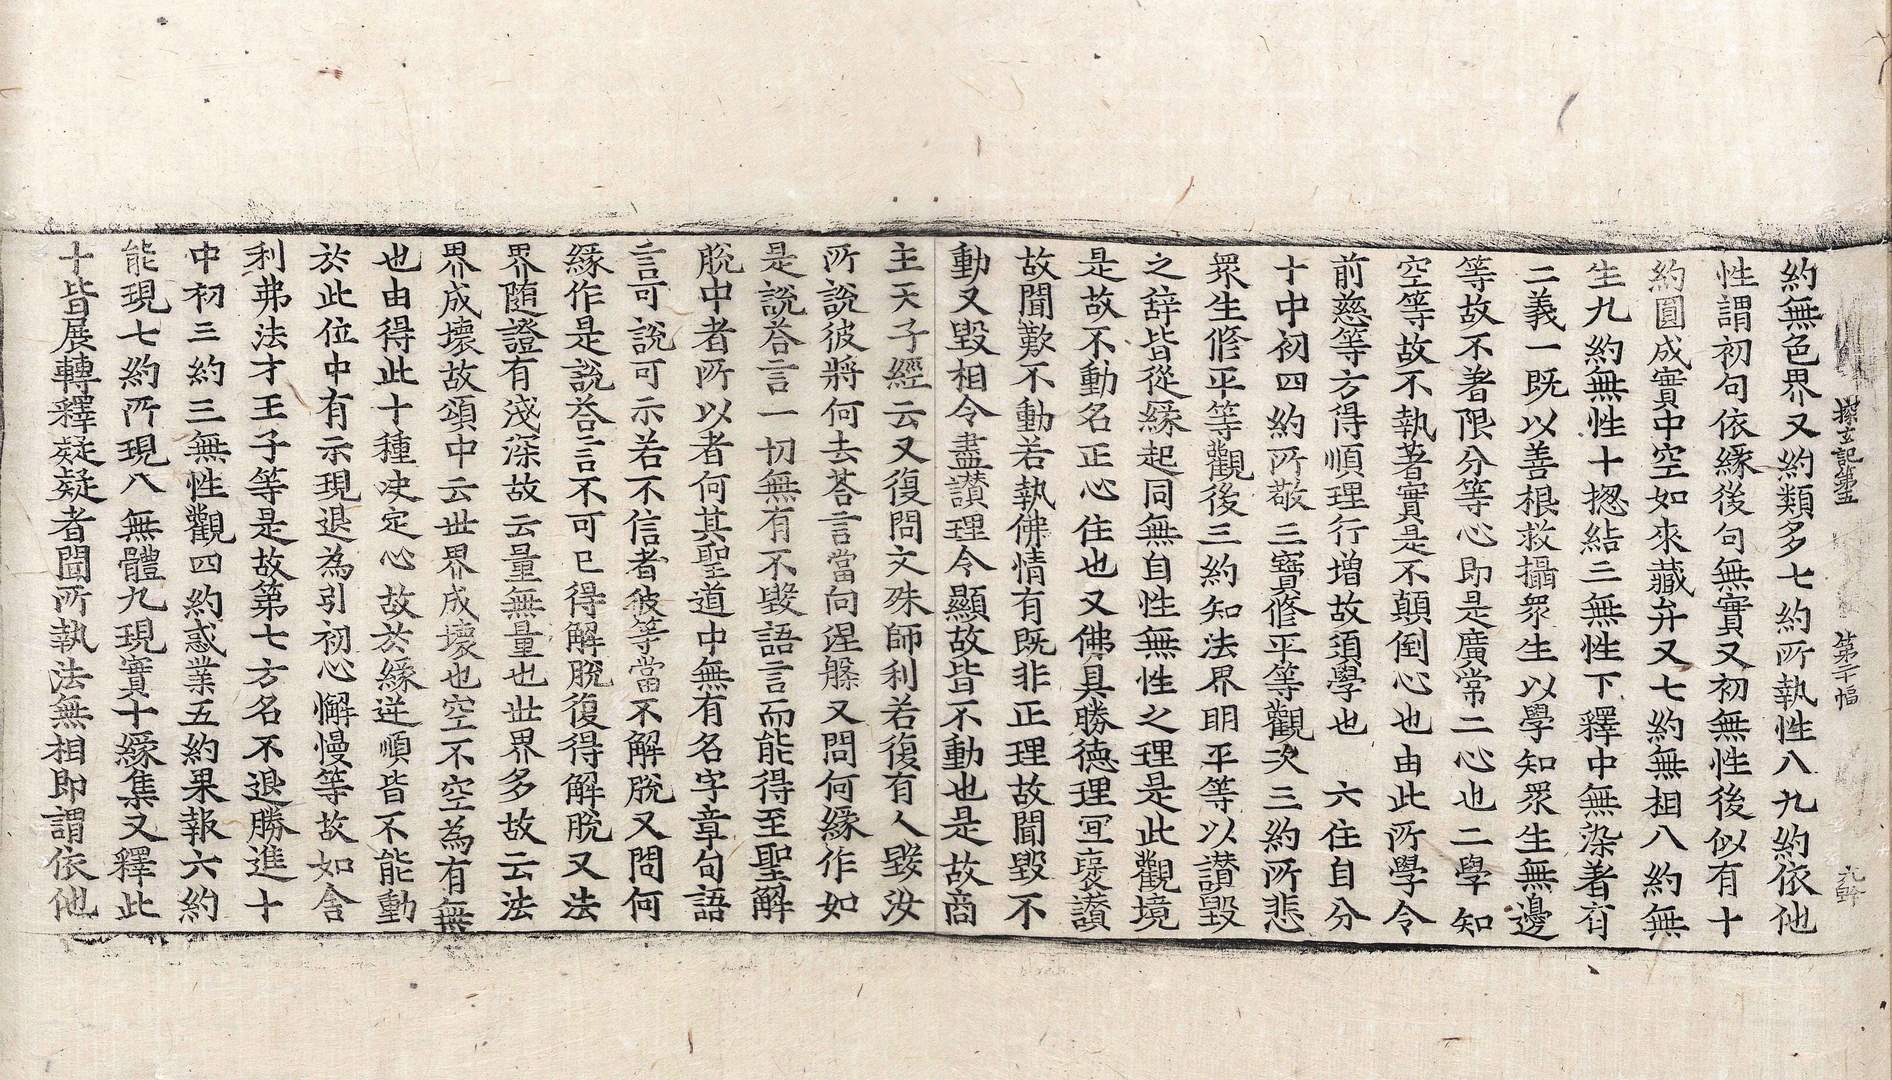 探玄記第五　第二十幅　九幹
約無色界又約類多七約所執性八九約依他
性謂初句依緣後句無實又初無性後似有十
約圓成實中空如來藏弁又七約無相八約無
生九約無性十揔結三無性下釋中無染著有
二義一既以善根救攝衆生以學知衆生無邊
等故不著限分等心即是廣常二心也二學知
空等故不執著實是不顛倒心也由此所學令
前慈等方得順理行增故須學也　六住自分
十中初四約所敬三寶修平等觀次三約所悲
衆生修平等觀後三約知法界明平等以讃毀
之辞皆從緣起同無自性無性之理是此觀境
是故不動名正心住也又佛具勝德理冝襃讃
故聞歎不動若執佛情有既非正理故聞毀不
動又毀相令盡讃理令顯故皆不動也是故商
主天子經云又復問文殊師利若復有人毀汝
所說彼將何去荅言當向涅槃又問何緣作如
是說荅言一切無有不毀語言而能得至聖解
脫中者所以者何其聖道中無有名字章句語
言可說可示若不信者彼等當不解脫又問何
緣作是說荅言不可已得解脫復得解脫又法
界隨證有淺深故云量無量也世界多故云法
界成壞故頌中云世界成壞也空不空為有無
也由得此十種决定心故於緣逆順皆不能動
於此位中有示現退為引初心懈慢等故如舍
利弗法才王子等是故第七方名不退勝進十
中初三約三無性觀四約惑業五約果報六約
能現七約所現八無體九現實十緣集又釋此
十皆展轉釋疑疑者聞所執法無相即謂依他